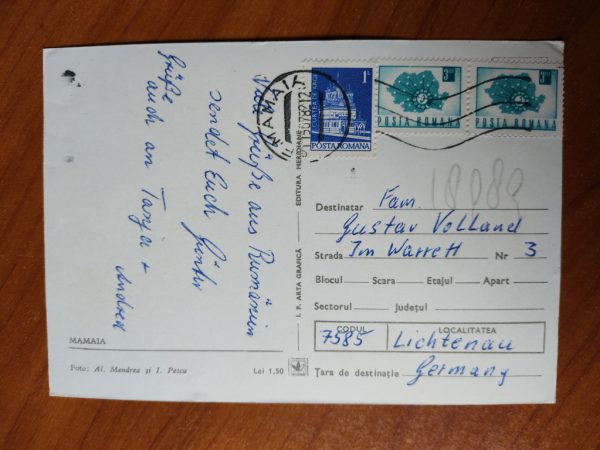 Viele Grüße aus Rumänien
sendet Euch Günter
Grüße
auch an Tanja +
Andrea
MAMAIA
Foto: Al. Mendrea și I. Pescu
Lei 1,50
I. P. ARTA GRAFICĂ
EDITURA MERIDIANE
MAMAIA
1L
CURTEA DE ARGEȘ
POSTA ROMANA
3
POSTA ROMANA
3
POSTA ROMANA
Destinatar Fam.
Gustav Volland
Strada Im Warrett Nr 3
Blocul Scara Etajul Apart
Sectorul Județul
CODUL LOCALITATEA
7585 Lichtenau
Țara de destinație Germany